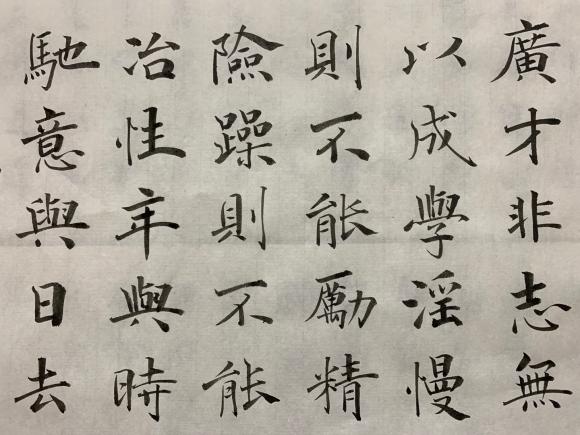 廣才非志無
以成學淫慢
則不能勵精
險躁則不能
冶性年與時
馳意與日去